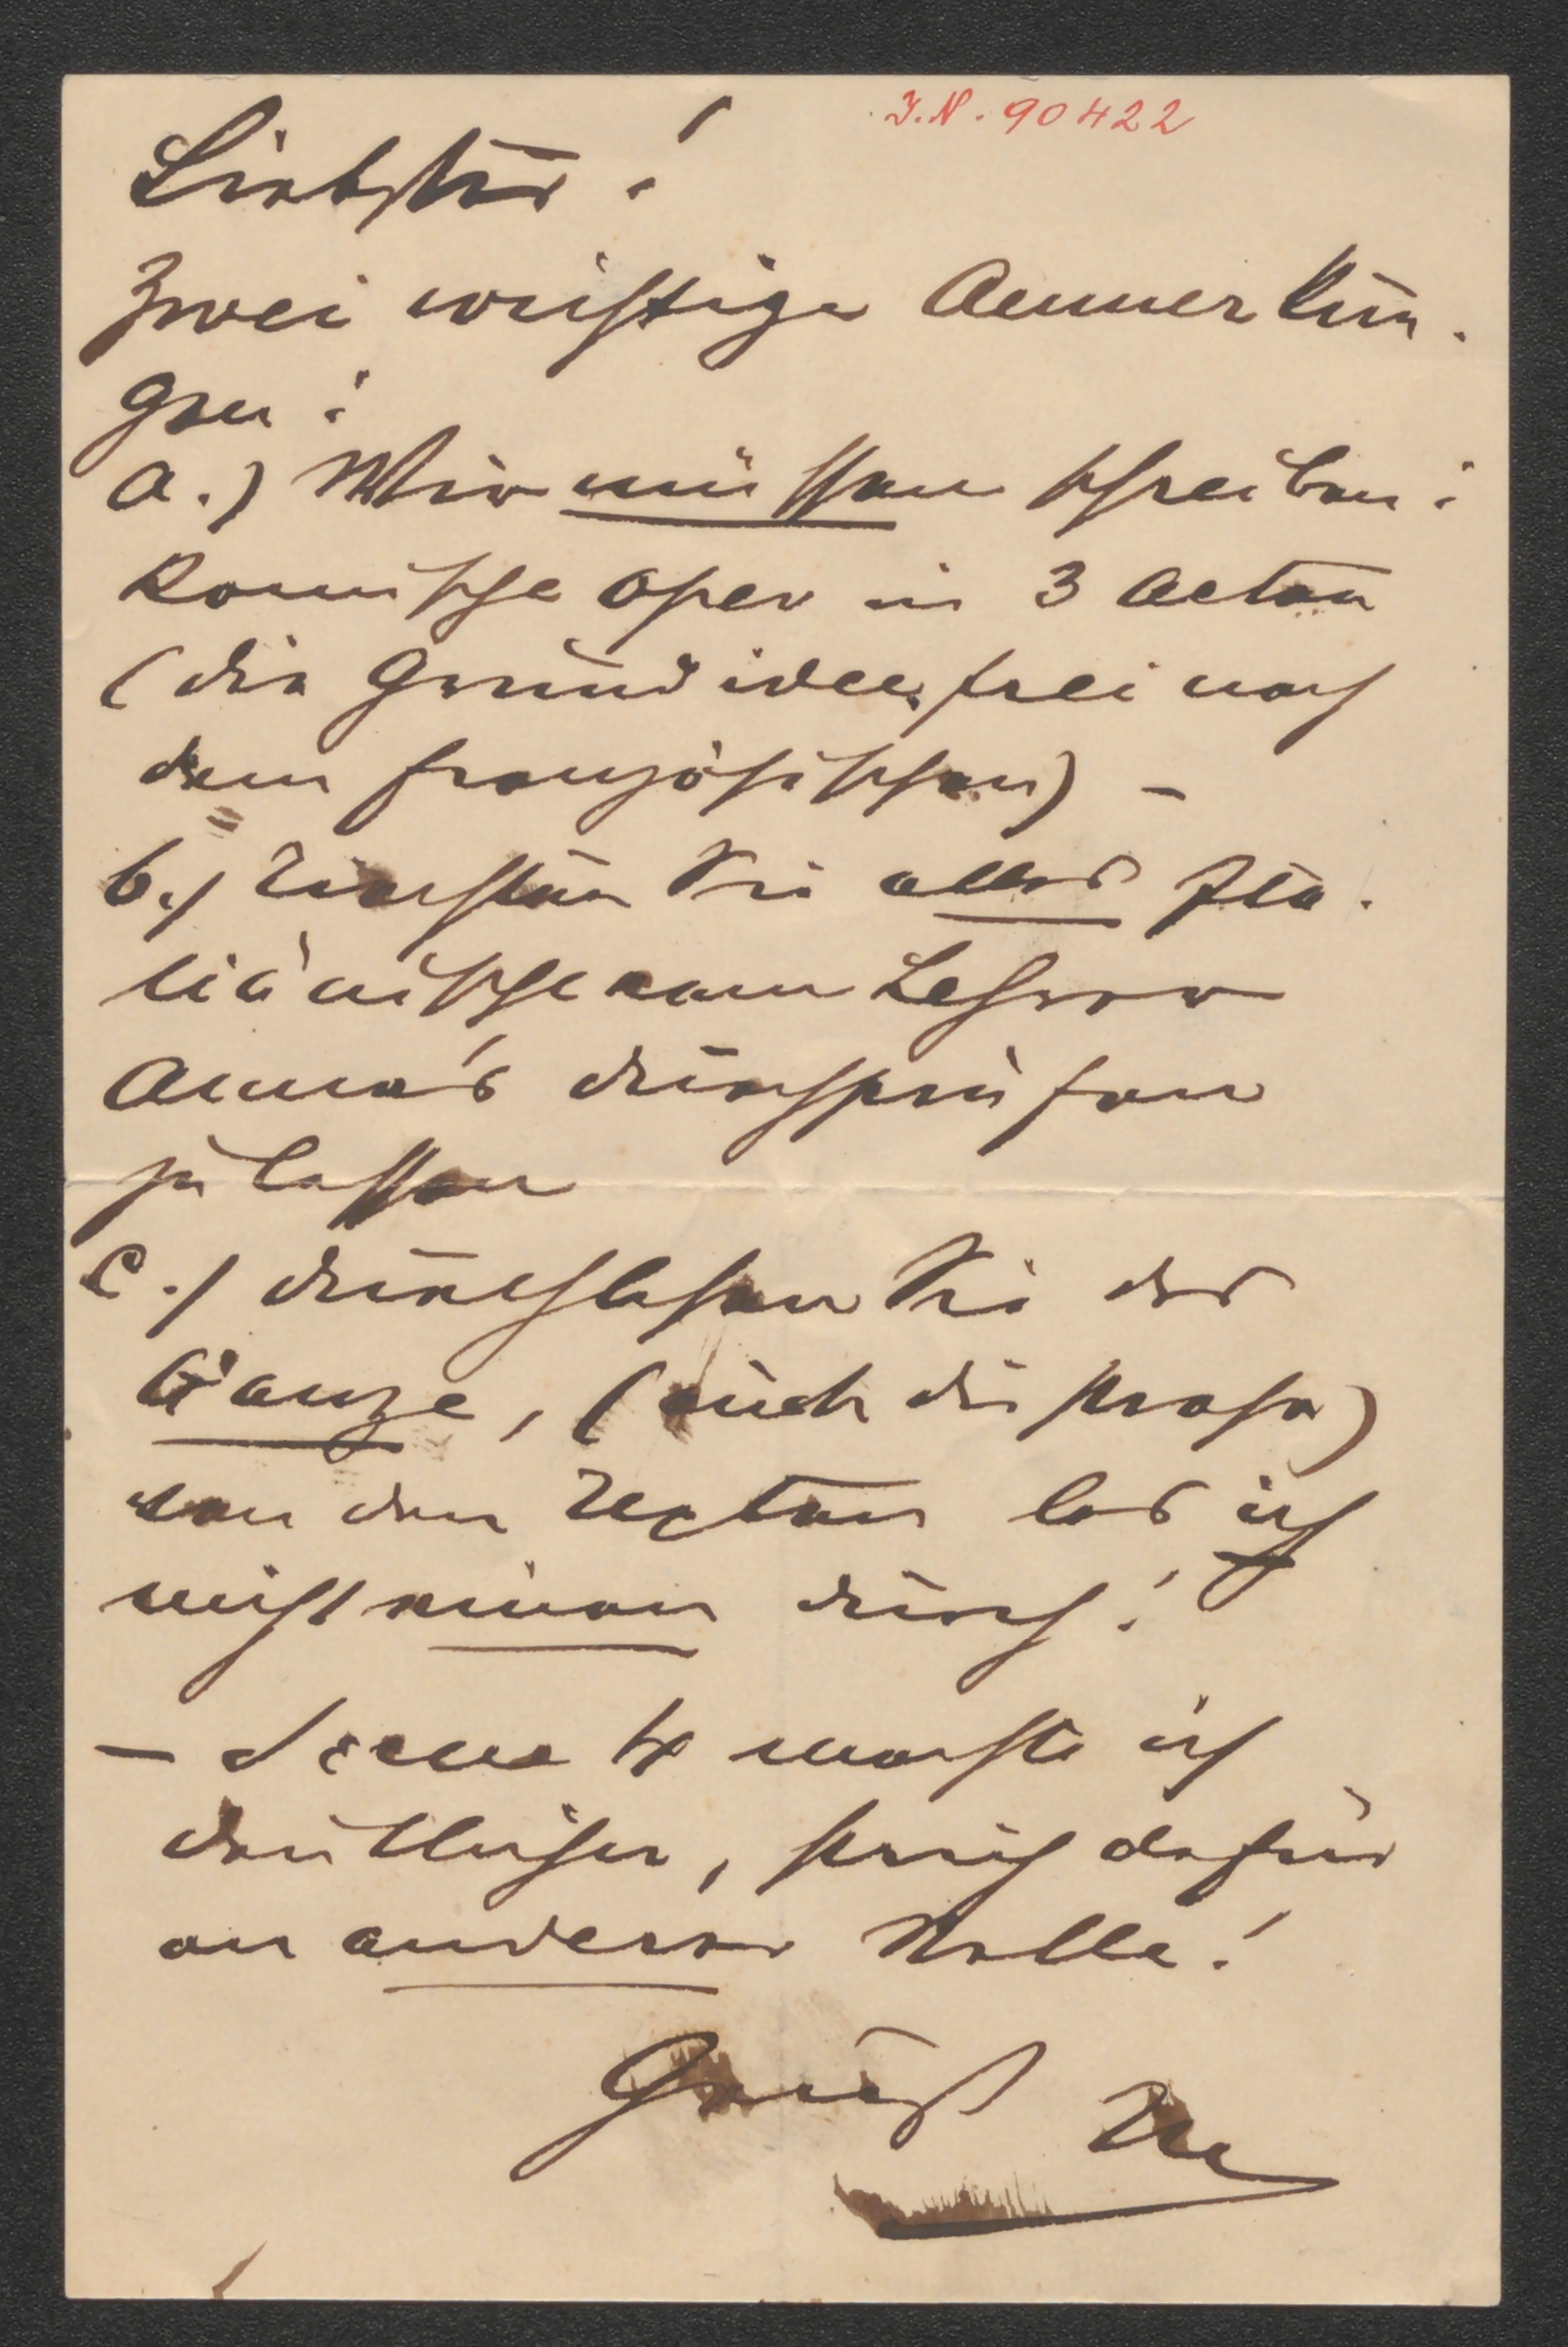 J.N. 90422
Liebster!
Zwei wichtige Anmerkun-
gen:
a.) Wir müssen schreiben:
Komische Oper in 3 Acten
(die Grundidee frei nach
dem französischen) –
b.) Sie alles Ita-
liänische vom Lehrer
Anna's durchprüfen
zu lassen
c.) durchlesen Sie das
Ganze, (auch die Prosa)
von den Texten las ich
nicht einen durch!
– Scene 4 machte ich
deutlicher, strich dafür
an anderer Stelle!
Gruß